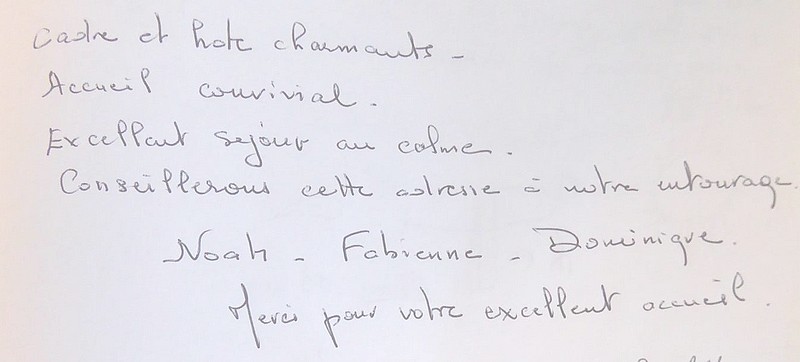 Cadre et hote charmants -
Accueil convivial.
Excellent séjour au calme.
Conseillerons cette adresse à notre entourage.
Noah - Fabienne - Dominique.
Merci pour votre excellent accueil.